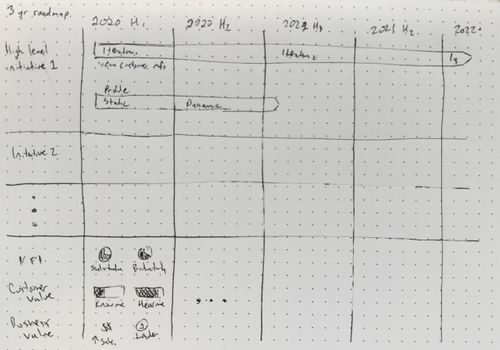 3 yr roadmap
2020 H1 2020 H2 2021 H1 2021 H2 2022
High level
initiative 1
Iteration 1 Iteration 2 I3
view customer info
Profile
Static Dynamic
Initiative 2
KPI
Satisfaction Productivity
Customer
Value
Know me Hear me
Business
Value
$$
↑ Sales Leader